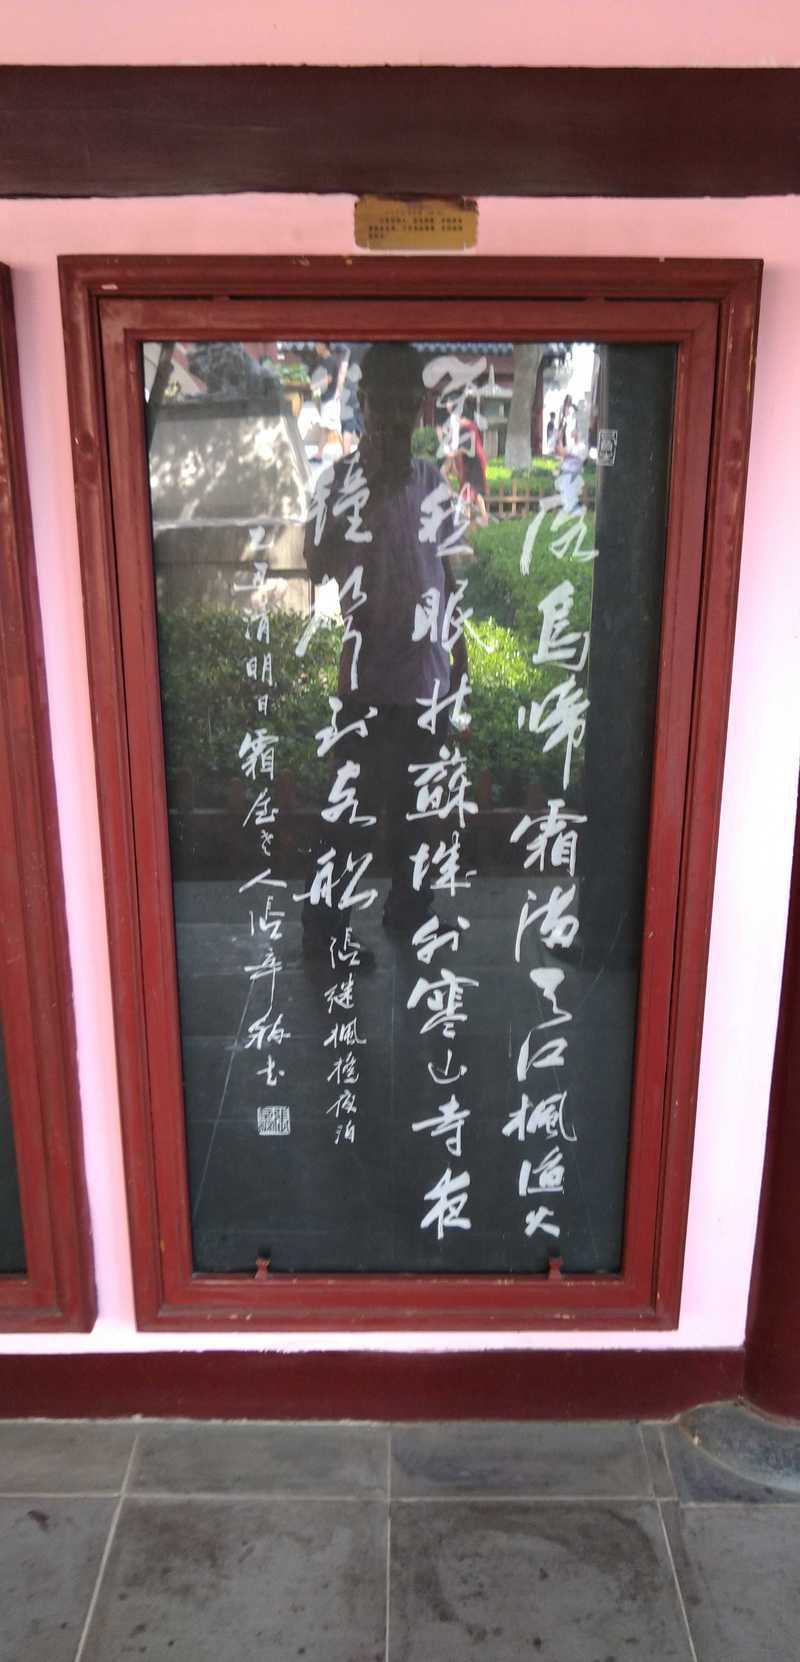 落烏啼霜滿天江楓漁火
對愁眠姑蘇城外寒山寺夜
半鐘聲到客船 張繼楓橋夜泊
乙丑清明日霜屋老人張辛稼書